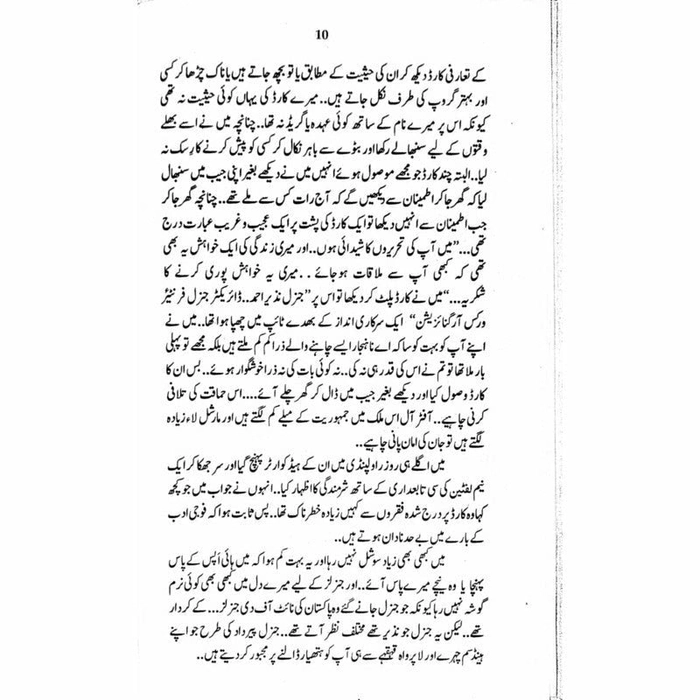 10
کے تعارفی کارڈ دیکھ کر ان کی حیثیت کے مطابق یا تو بچھ جاتے ہیں یا ناک چڑھا کر کسی
اور بہتر گروپ کی طرف نکل جاتے ہیں.. میرے کارڈ کی یہاں کوئی حیثیت نہ تھی
کیونکہ اس پر میرے نام کے ساتھ کوئی عہدہ یا گریڈ نہ تھا.. چنانچہ میں نے اسے بھلے
وقتوں کے لیے سنبھالے رکھا اور بٹوے سے باہر نکال کر کسی کو پیش کرنے کا رسک نہ
لیا.. البتہ چند کارڈ جو مجھے موصول ہوئے انہیں میں نے دیکھے بغیر اپنی جیب میں سنبھال
لیا کہ گھر جا کر اطمینان سے دیکھیں گے کہ آج رات کس سے ملے تھے.. چنانچہ گھر جا کر
جب اطمینان سے انہیں دیکھا تو ایک کارڈ کی پشت پر ایک عجیب و غریب عبارت درج
تھی... ”میں آپ کی تحریروں کا شیدائی ہوں.. اور میری زندگی کی ایک خواہش یہ بھی
تھی کہ کبھی آپ سے ملاقات ہو جائے.. میری یہ خواہش پوری کرنے کا
شکریہ...“ میں نے کارڈ پلٹ کر دیکھا تو اس پر ”جنرل نذیر احمد.. ڈائریکٹر جنرل فرنٹیئر
ورکس آرگنائزیشن“ ایک سرکاری انداز کے بھدے ٹائپ میں چھپا ہوا تھا.. میں نے
اپنے آپ کو بہت کوسا کہ اے ناہنجار ایسے چاہنے والے ذرا کم کم ملتے ہیں بلکہ مجھے تو پہلی
بار ملا تھا تو تم نے اس کی قدر ہی نہ کی.. نہ کوئی بات کی نہ ذرا خوشگوار ہوئے.. بس ان کا
کارڈ وصول کیا اور دیکھے بغیر جیب میں ڈال کر گھر چلے آئے.... اس حماقت کی تلافی
کرنی چاہیے.. آفٹر آل اس ملک میں جمہوریت کے میلے کم لگتے ہیں اور مارشل لاء زیادہ
لگتے ہیں تو جان کی امان پانی چاہیے..
میں اگلے ہی روز راولپنڈی میں ان کے ہیڈ کوارٹر پہنچ گیا اور سر جھکا کر ایک
نیم لفٹین کی سی تابعداری کے ساتھ شرمندگی کا اظہار کیا.. انہوں نے جواب میں جو کچھ
کہا وہ کارڈ پر درج شدہ فقروں سے کہیں زیادہ خطرناک تھا.. پس ثابت ہوا کہ فوجی ادب
کے بارے میں بے حد نادان ہوتے ہیں..
میں کبھی بھی زیادہ سوشل نہیں رہا اور یہ بہت کم ہوا کہ میں ہائی اپس کے پاس
پہنچا یا وہ نیچے میرے پاس آئے.. اور جنرلز کے لیے میرے دل میں کبھی بھی کوئی نرم
گوشہ نہیں رہا کیونکہ جو جنرل جانے گئے وہ پاکستان کی نائٹ آف دی جنرلز... کے کردار
تھے.. لیکن یہ جنرل جو نذیر تھے مختلف نظر آتے تھے.. جنرل پیرداد کی طرح جو اپنے
ہینڈسم چہرے اور لاپرواہ قہقہے سے ہی آپ کو ہتھیار ڈالنے پر مجبور کر دیتے ہیں..